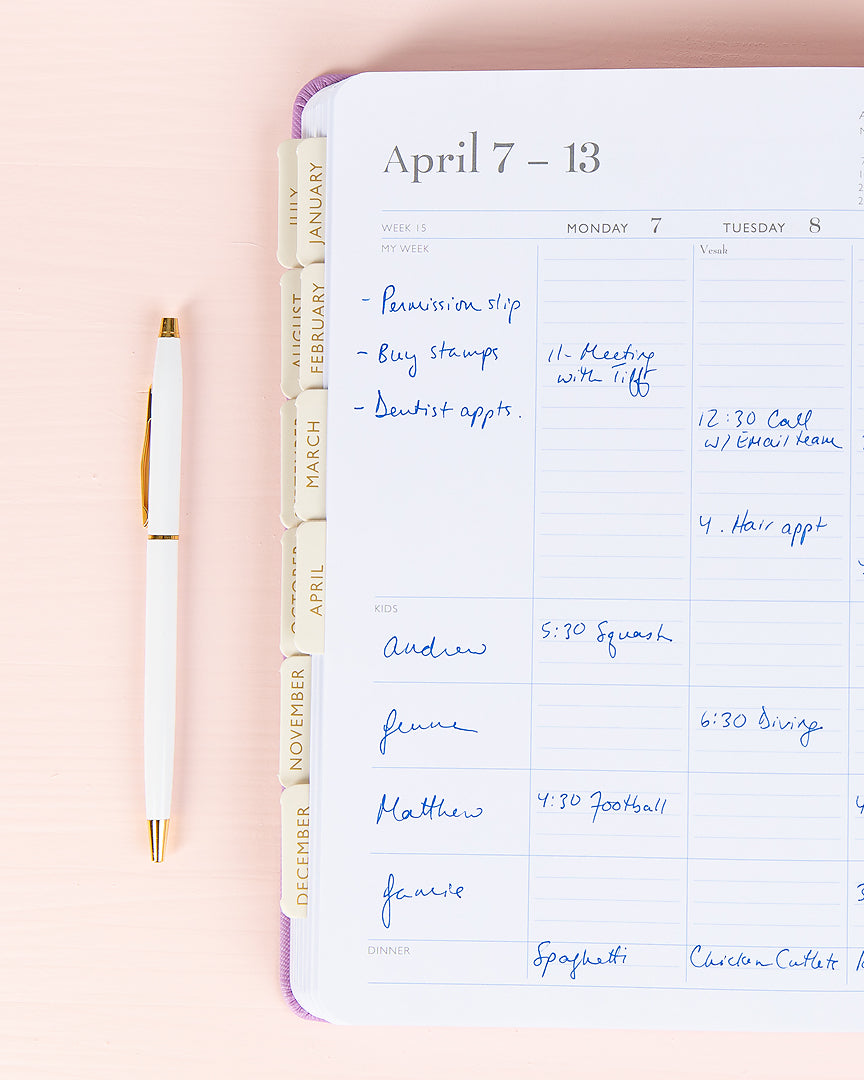 JULY
JANUARY
AUGUST
FEBRUARY
MARCH
OCTOBER
APRIL
NOVEMBER
DECEMBER
April 7 – 13
WEEK 15
MONDAY 7
TUESDAY 8
MY WEEK
Vesak
- Permission slip
- Buy stamps
- Dentist appts.
11- Meeting
with Tiff
12:30 Call
w/ EMail team
4. Hair appt
KIDS
Andrew
5:30 Squash
Jenna
6:30 Diving
Matthew
4:30 Football
Jamie
DINNER
Spaghetti
Chicken Cutlets